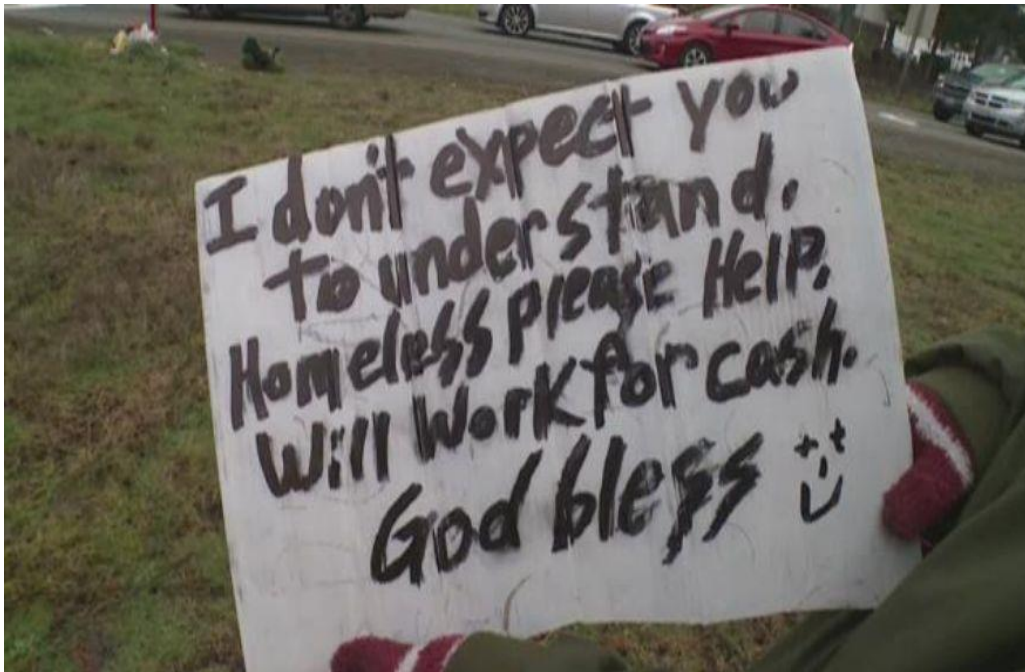 I don't expect you
to understand.
Homeless please Help.
Will Work for cash.
God bless